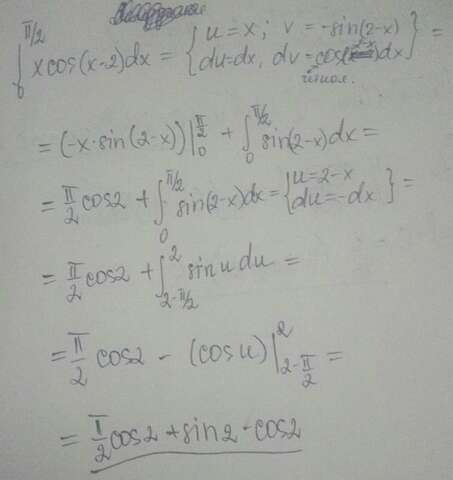 ∫₀^{π/2} x cos(x-2)dx = { u=x; v=-sin(2-x) du=dx, dv=cos( )dx } =
= (-x·sin(2-x))|₀^{π/2} + ∫₀^{π/2} sin(2-x)dx =
= π/2 cos2 + ∫₀^{π/2} sin(2-x)dx = { u=2-x du=-dx } =
= π/2 cos2 + ∫_{2-π/2}^{2} sin u du =
= π/2 cos2 - (cos u)|_{2-π/2}^{2} =
= π/2 cos2 + sin2 - cos2